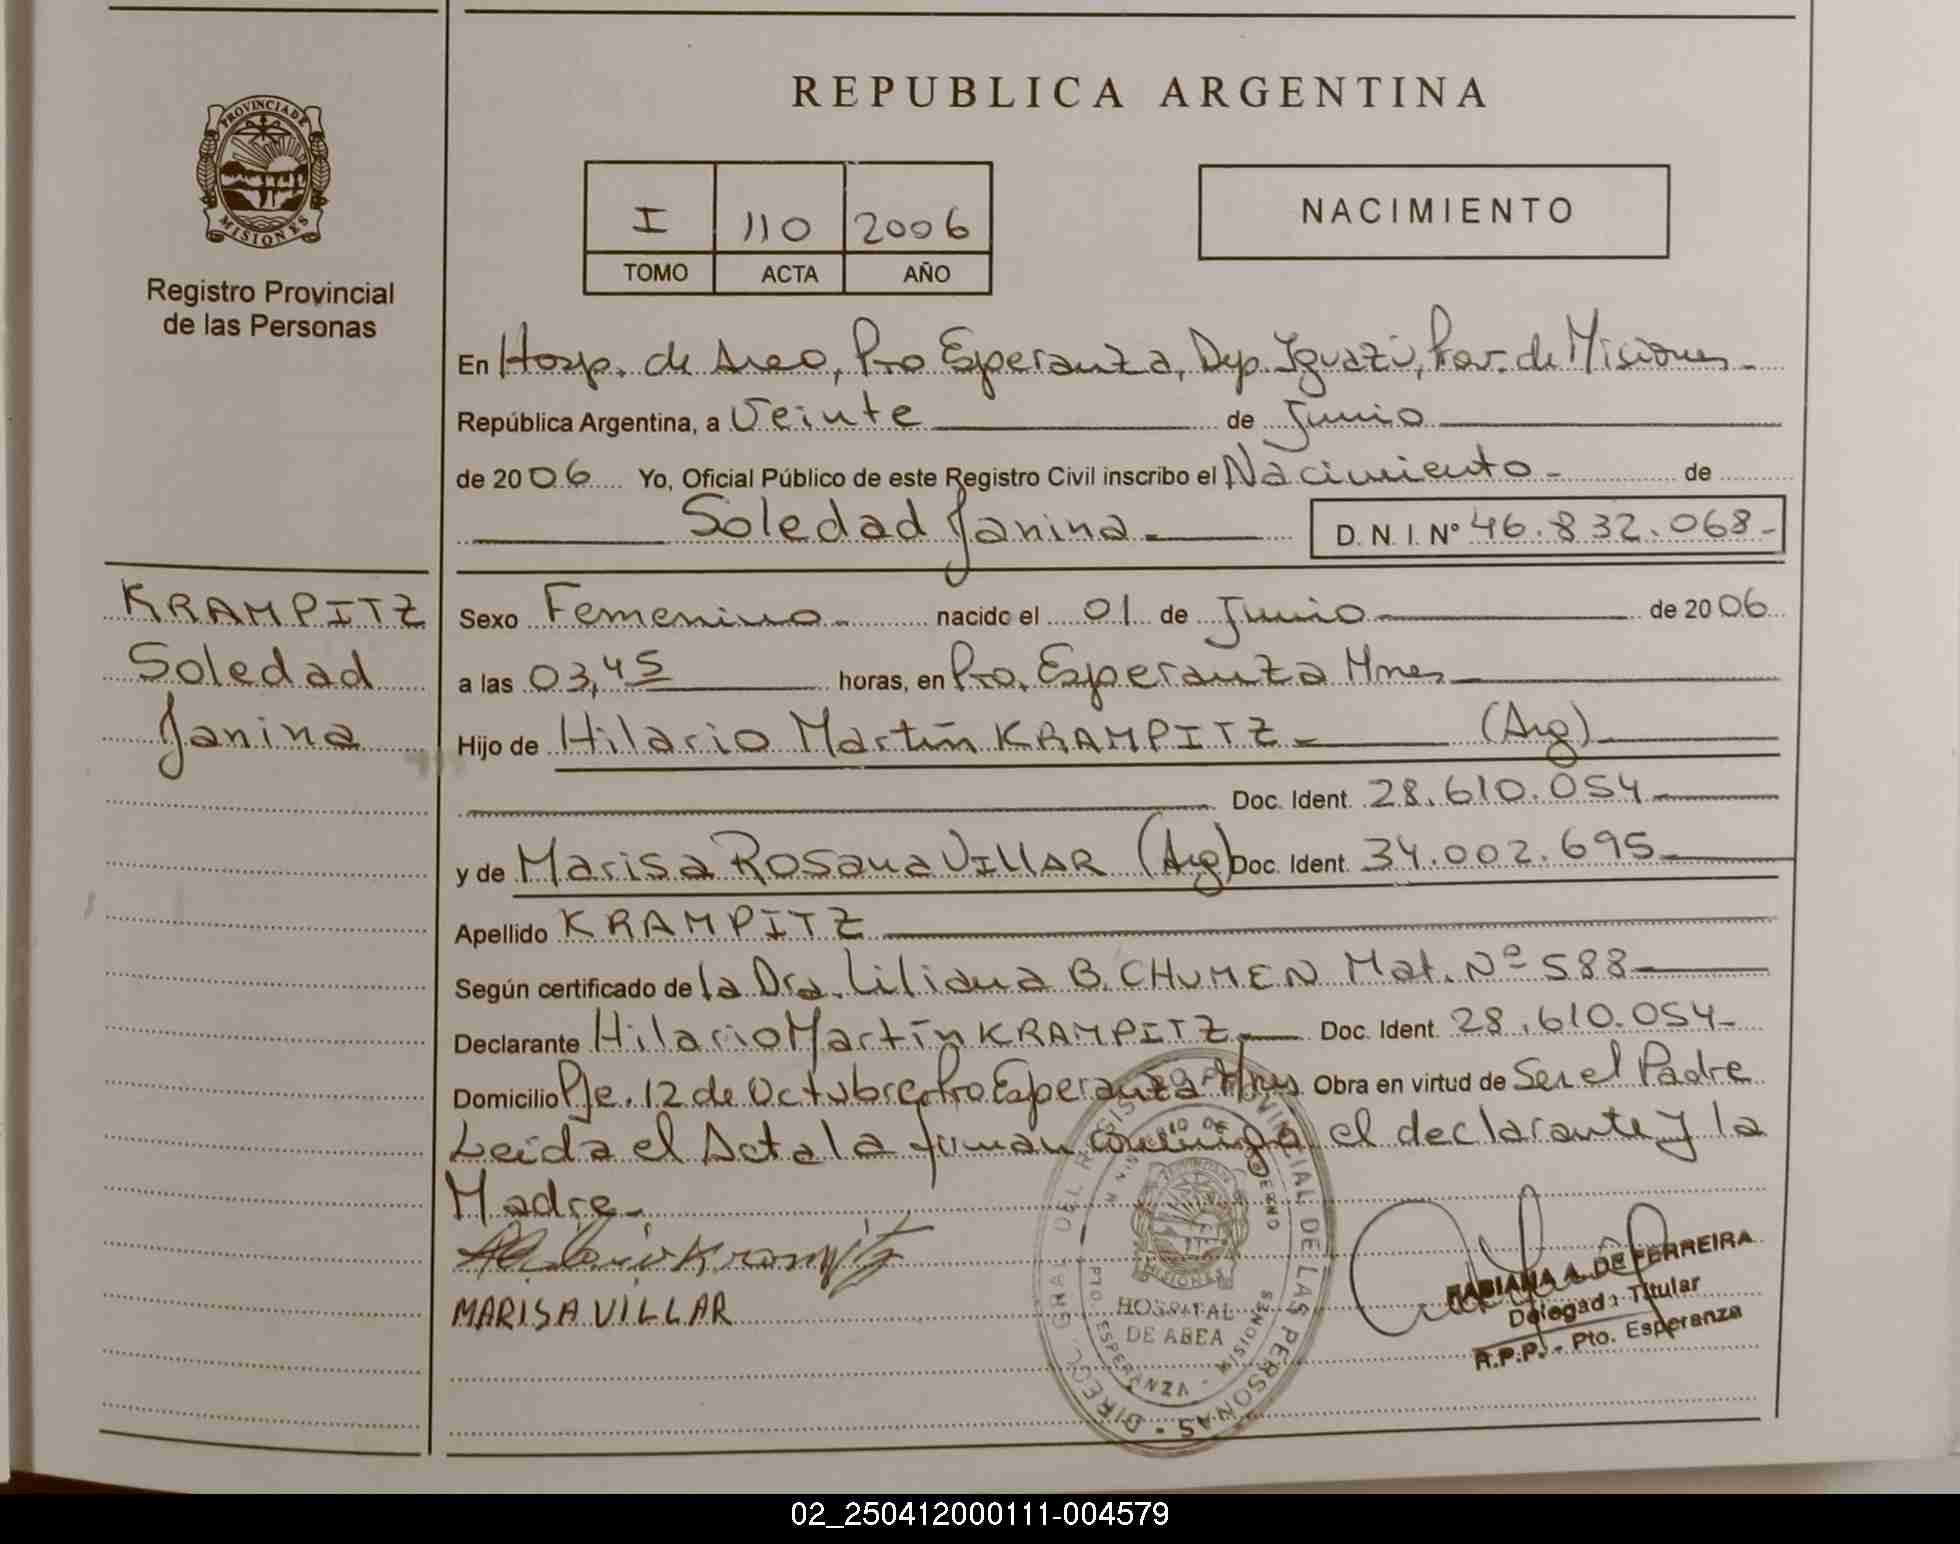 REPUBLICA ARGENTINA
PROVINCIA DE
MISIONES
Registro Provincial
de las Personas
I 110 2006
TOMO ACTA AÑO
NACIMIENTO
En Hosp. de Area, Pto Esperanza, Dep. Iguazú, Prov. de Misiones -
República Argentina, a Veinte de Junio
de 2006 Yo, Oficial Público de este Registro Civil inscribo el Nacimiento - de
Soledad Janina - D. N. I. Nº 46.832.068-
KRAMPITZ
Soledad
Janina
Sexo Femenino - nacido el 01 de Junio de 2006
a las 03,45 horas, en Pto. Esperanza Mnes
Hijo de Hilario Martín KRAMPITZ - (Arg)
Doc. Ident. 28.610.054
y de Marisa Rosana VILLAR (Arg) Doc. Ident. 34.002.695-
Apellido KRAMPITZ
Según certificado de la Dra. Liliana B. CHUMEN Mat. Nº 588
Declarante Hilario Martín KRAMPITZ - Doc. Ident. 28.610.054-
Domicilio Pje. 12 de Octubre Pto Esperanza Mnes Obra en virtud de Ser el Padre
Leída el Acta la firman conmigo el declarante y la
Madre -
MARISA VILLAR
DIRECC. GRAL. DEL REGISTRO PROVINCIAL DE LAS PERSONAS -
MINISTERIO DE GOBIERNO
MISIONES
HOSPITAL
DE AREA
PTO. ESPERANZA - MISIONES
FABIANA A. DE FERREIRA
Delegada Titular
R.P.P. - Pto. Esperanza
02_250412000111-004579